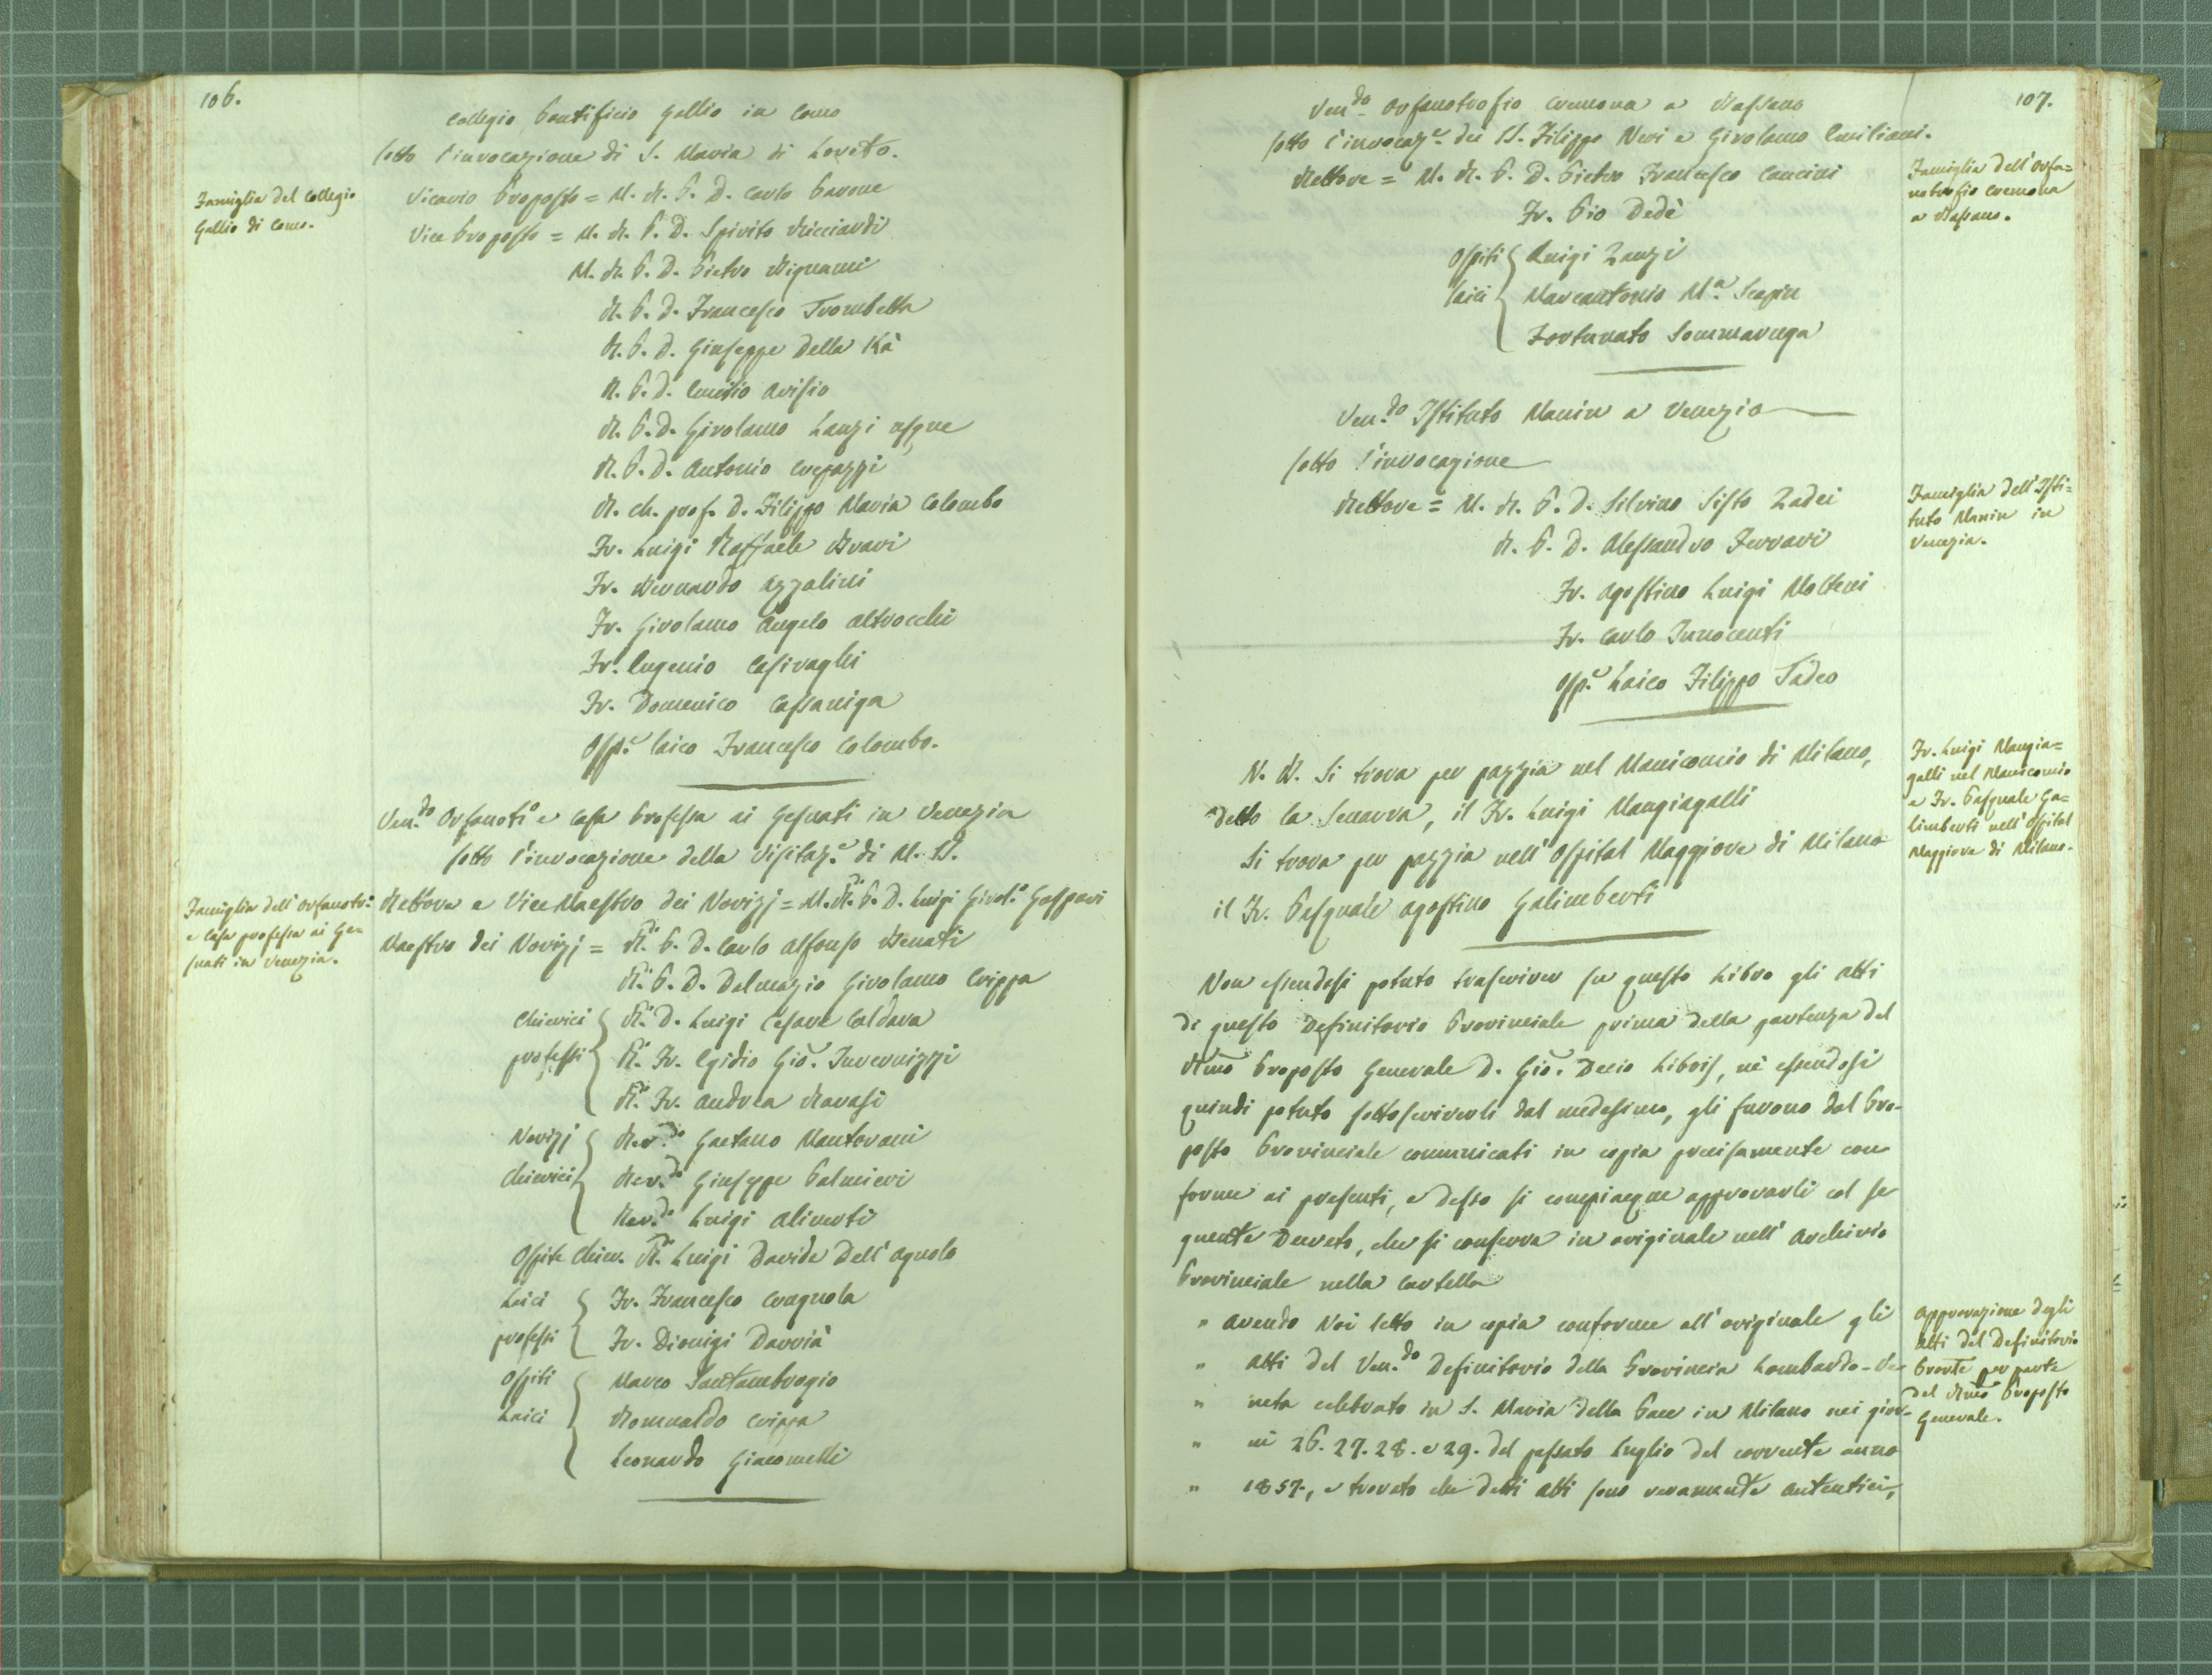 106.
Collegio Pontificio Gallio in Como
sotto l'invocazione di S. Maria di Loreto.
Famiglia del Collegio
Gallio di Como.
Vicario Proposto = M. R. P. D. Carlo Pavone
Vice Proposto = M. R. P. D. Spirito Ricciardi
M. R. P. D. Pietro Bignami
R. P. D. Francesco Trombetta
R. P. D. Giuseppe Della Kà
R. P. D. Emilio Arisio
R. P. D. Girolamo Lanzi
R. P. D. Antonio Crepazzi
R. Ch. prof. D. Filippo Maria Colombo
Fr. Luigi Raffaele Bravi
Fr. Bernardo Azzalini
Fr. Girolamo Angelo Altrocchi
Fr. Eugenio Casiraghi
Fr. Domenico Cassaniga
Osp.e laico Francesco Colombo.
Ven.do Orfanot.o e Casa Professa ai Gesuati in Venezia
sotto l'invocazione della Visitaz.e di M. SS.
Famiglia dell'Orfanotr:
e Casa professa ai Ge=
suati in Venezia.
Rettore e Vice Maestro dei Novizj = M. R. P. D. Luigi Girol.o Gaspari
Maestro dei Novizj = R. P. D. Carlo Alfonso Benati
R. P. D. Dalmazio Girolamo Crippa
Chierici R. D. Luigi Cesare Caldara
professi R. Fr. Egidio Gio. Invernizzi
R. Fr. Andrea Ravasi
Novizj Rev.do Gaetano Mantovani
Chierici Rev.do Giuseppe Palmieri
Rev.do Luigi Aliverti
Ospite Chier. R. Luigi Davide Dell'Agnolo
Laici Fr. Francesco Crugnola
professi Fr. Dionigi Darrià
Ospiti Marco Santambrogio
Laici Romualdo Crippa
Leonardo Giacomelli
107.
Ven.do Orfanotrofio Cremona a Bassano
sotto l'invocaz.e dei SS. Filippo Neri e Girolamo Emiliani.
Famiglia dell'Orfa=
notrofio Cremona
a Bassano.
Rettore = M. R. P. D. Pietro Francesco Concini
Fr. Pio Dedè
Ospiti Luigi Zanzi
laici Marcantonio M.a Scapin
Fortunato Sommaruga
Ven.do Istituto Manin a Venezia
sotto l'invocazione
Famiglia dell'Isti=
tuto Manin in
Venezia.
Rettore = M. R. P. D. Silvino Sisto Zadei
R. P. D. Alessandro Ferrari
Fr. Agostino Luigi Molteni
Fr. Carlo Innocenti
Osp.e Laico Filippo Tadeo
N. B. Si trova per pazzia nel Manicomio di Milano,
detto la Senavra, il Fr. Luigi Mangiagalli
Si trova per pazzia nell'Ospital Maggiore di Milano
il Fr. Pasquale Agostino Galimberti
Fr. Luigi Mangia=
galli nel Manicomio
e Fr. Pasquale Ga=
limberti nell'Ospital
Maggiore di Milano.
Non essendosi potuto trascriver su questo Libro gli atti
di questo Definitorio Provinciale prima della partenza del
Rmo Proposto Generale D. Gio. Decio Libois, nè essendosi
quindi potuto sottoscriverli dal medesimo, gli furono dal Pro-
posto Provinciale comunicati in copia precisamente con
forme ai presenti, e desso si compiacque approvarli col se
guente Decreto, che si conserva in originale nell'Archivio
Provinciale nella Cartella
" Avendo Noi letto in copia conforme all'originale gli
" Atti del Ven.do Definitorio della Provincia Lombardo-Ve-
" neta celebrato in S. Maria della Pace in Milano nei gior-
" ni 26. 27. 28. e 29. del passato Luglio del corrente anno
" 1857., e trovato che detti atti sono veramente autentici,
Approvazione degli
Atti del Definitorio
Provle per parte
del Rmo Proposto
Generale.